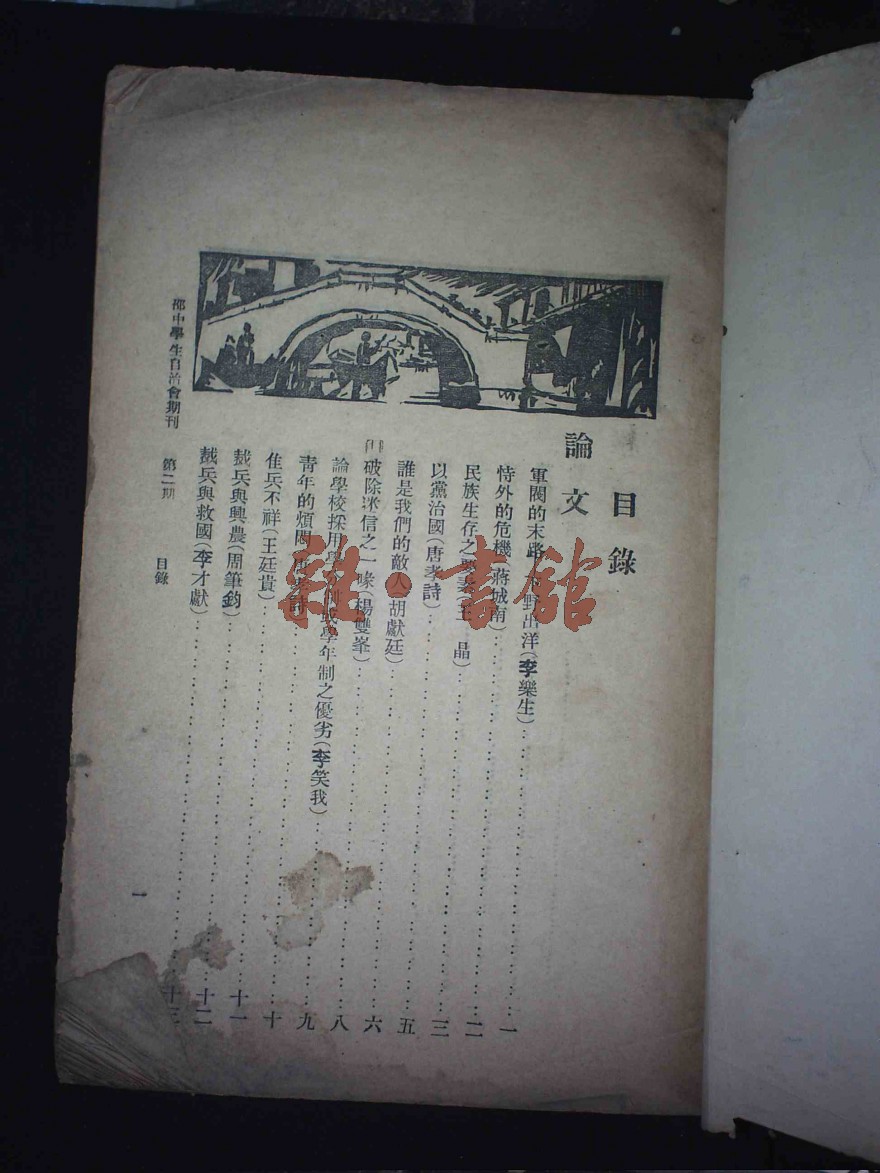 目錄
論文
軍閥的末路 下野出洋(李樂生)……一
恃外的危機(蔣城南)……二
民族生存之要素(王 晶)……三
以黨治國(唐孝詩)……五
誰是我們的敵人(胡獻廷)……六
破除迷信之一喙(楊雙峯)……八
論學校採用學分制或學年制之優劣(李笑我)……九
青年的煩悶(唐孝詩)……十
佳兵不祥(王廷貴)……十一
裁兵與興農(周筆鈞)……十二
裁兵與救國(李才獻)……十三
邵中學生自治會期刊 第二期 目錄 一
雜·書館